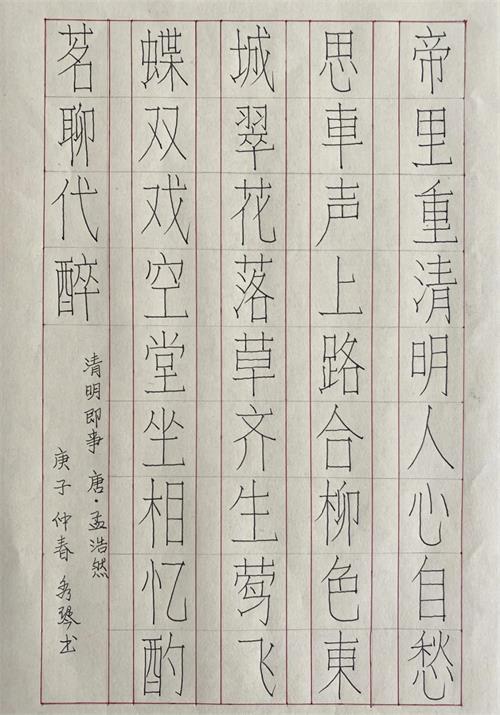 帝里重清明人心自愁
思車声上路合柳色東
城翠花落草齐生莺飞
蝶双戏空堂坐相忆酌
茗聊代醉
清明即事 唐·孟浩然
庚子仲春 秀琴书